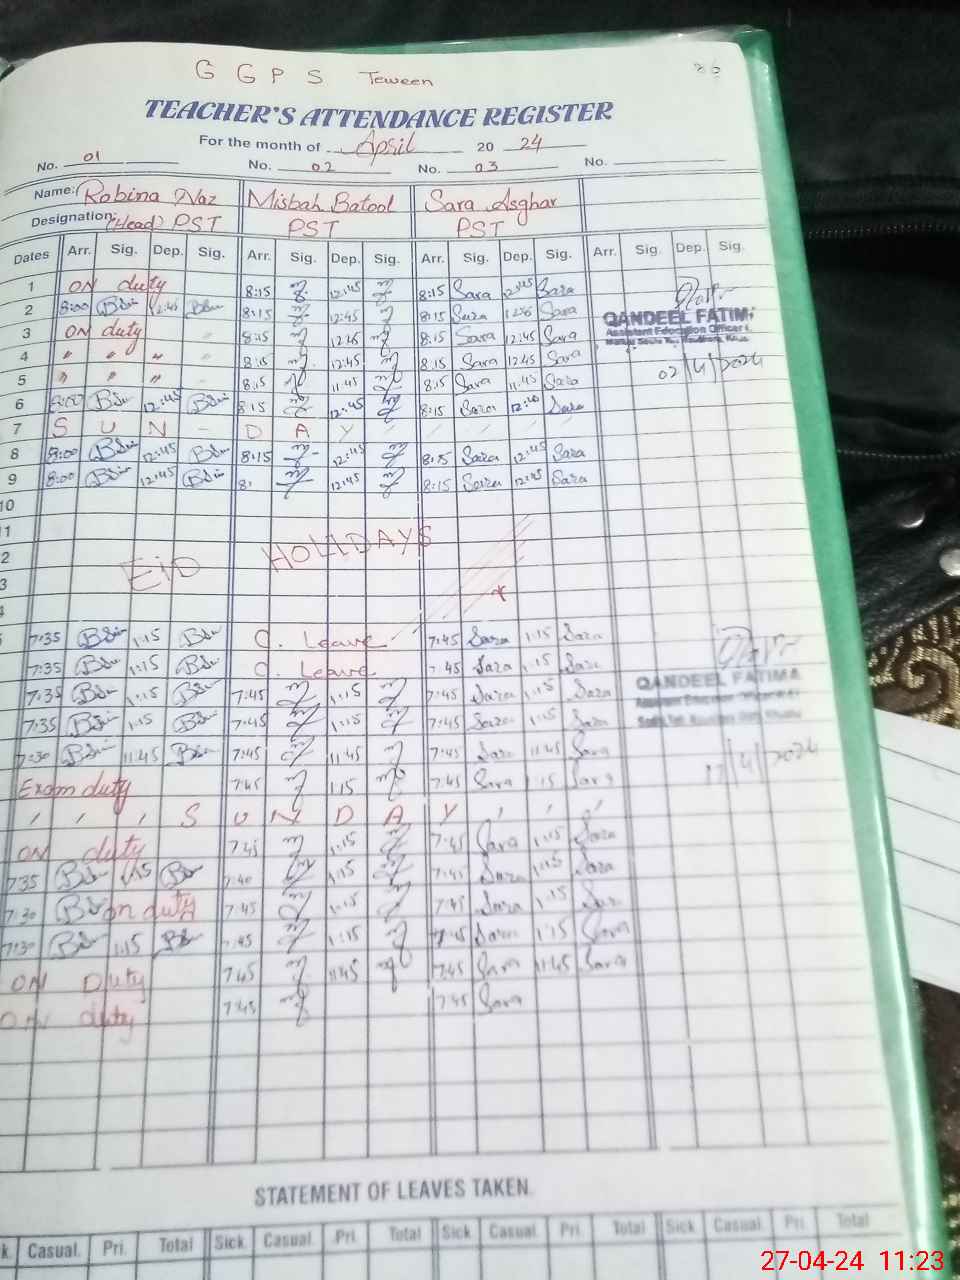 86
G G P S Teween
TEACHER'S ATTENDANCE REGISTER
For the month of April 20 24
No. 01 No. 02 No. 03 No.
Name: Robina Naz Misbah Batool Sara Asghar
Designation: (Head) PST PST PST
Dates Arr. Sig. Dep. Sig. Arr. Sig. Dep. Sig. Arr. Sig. Dep. Sig. Arr. Sig. Dep. Sig.
1 ON duty 8:15 12:45 8:15 Sara 12:45 Sara
2 8:00 12:45 8:15 12:45 8:15 Sara Sara
QANDEEL FATIMA
Assistant Education Officer
3 ON duty 8:15 8:15 Sara 12:45 Sara
4 " " " 8:15 12:45 8:15 Sara 12:45 Sara
02/4/2024
5 " " " 8:15 11:45 8:15 Sara 11:45 Sara
6 8:00 12:45 8:15 12:45 8:15 Sara Sara
7 S U N - D A Y
8 8:00 12:45 8:15 12:45 8:15 Sara 12:45 Sara
9 8:00 12:45 8: 12:45 8:15 Sara 12:45 Sara
10
11
2 EID HOLIDAYS
3
4
7:35 1:15 C. Leave 7:45 Sara 1:15 Sara
7:35 1:15 C. Leave 7:45 Sara 1:15 Sara
7:35 1:15 7:45 1:15 7:45 Sara 1:15 Sara
QANDEEL FATIMA
7:35 1:15 7:45 1:15 7:45 Sara 1:15 Sara
7:30 11:45 7:45 11:45 7:45 Sara 11:45 Sara
17/4/2024
Exam duty 7:45 1:15 7:45 Sara 1:15 Sara
S U N D A Y
ON duty 7:45 1:15 7:45 Sara 1:15 Sara
7:35 1:15 7:40 1:15 7:45 Sara 1:15 Sara
7:30 on duty 7:45 1:15 7:45 Sara 1:15 Sara
7:30 1:15 7:45 1:15 7:45 Sara 1:15 Sara
ON Duty 7:45 11:45 7:45 Sara 11:45 Sara
ON duty 7:45 7:45 Sara
STATEMENT OF LEAVES TAKEN.
k. Casual. Pri. Total Sick Casual. Pri. Total Sick Casual. Pri. Total Sick. Casual. Pri. Total
27-04-24 11:23